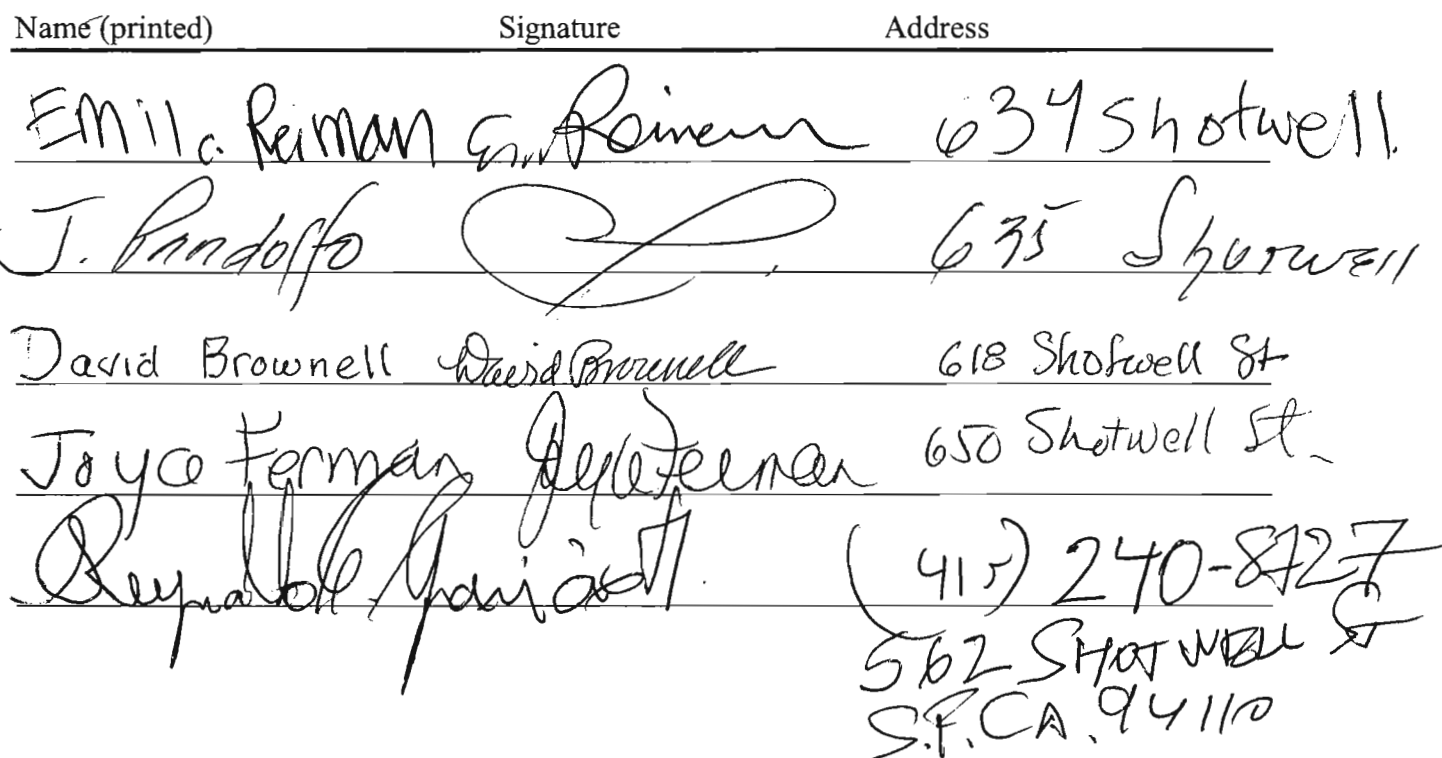 Name (printed) Signature Address
Emil C. Reiman Emil Reiman 634 Shotwell.
J. Pandolfo 635 Shotwell
David Brownell David Brownell 618 Shotwell St
Joyce Ferman Joyce Ferman 650 Shotwell St.
(415) 240-8727
562 SHOTWELL ST
S.F. CA. 94110